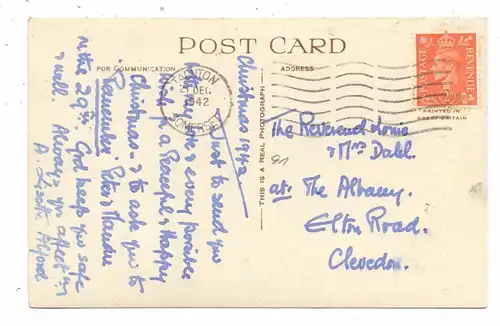 POST CARD
FOR COMMUNICATION
ADDRESS
TAUNTON
21 DEC
1942
SOMERSET
POSTAGE
REVENUE
PRINTED IN
GREAT BRITAIN
THIS IS A REAL PHOTOGRAPH
Christmas 1942
Just to send you
& every possible
for a Peaceful & Happy
Christmas - & to ask you to
"Remember" Peter &
on the 29th. God keep you safe
& well. Always yr affect
A.
The Reverend Louis
& Mrs Dahl.
at: The Albany.
Elton Road.
Clevedon.